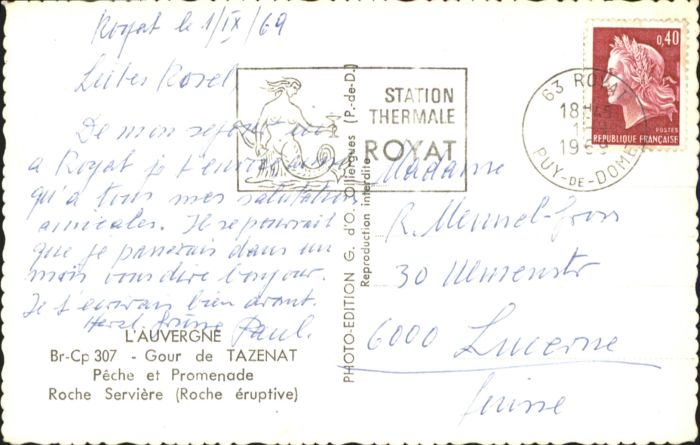 Royat le 1/IX/69
Liebes Roseli,
De mon séjour ici
a Royat je t'envoie ainsi
qu'à tous mes salutations
amicales. Il se pourrait
que je passerais dans un
mois vous dire bonjour.
Je t'écrirais bien avant.
Herzl. Grüsse Paul.
L'AUVERGNE
Br-Cp 307 - Gour de TAZENAT
Pêche et Promenade
Roche Servière (Roche éruptive)
PHOTO-EDITION G. d'O. Olliergues (P.-de-D.)
Reproduction interdite
STATION
THERMALE
ROYAT
63 ROYAT
18H
1969
PUY-DE-DOME
0,40
POSTES
REPUBLIQUE FRANÇAISE
Madame
R. Meunel-frors
30 Ulmenstr
6000 Lucerne
Suisse